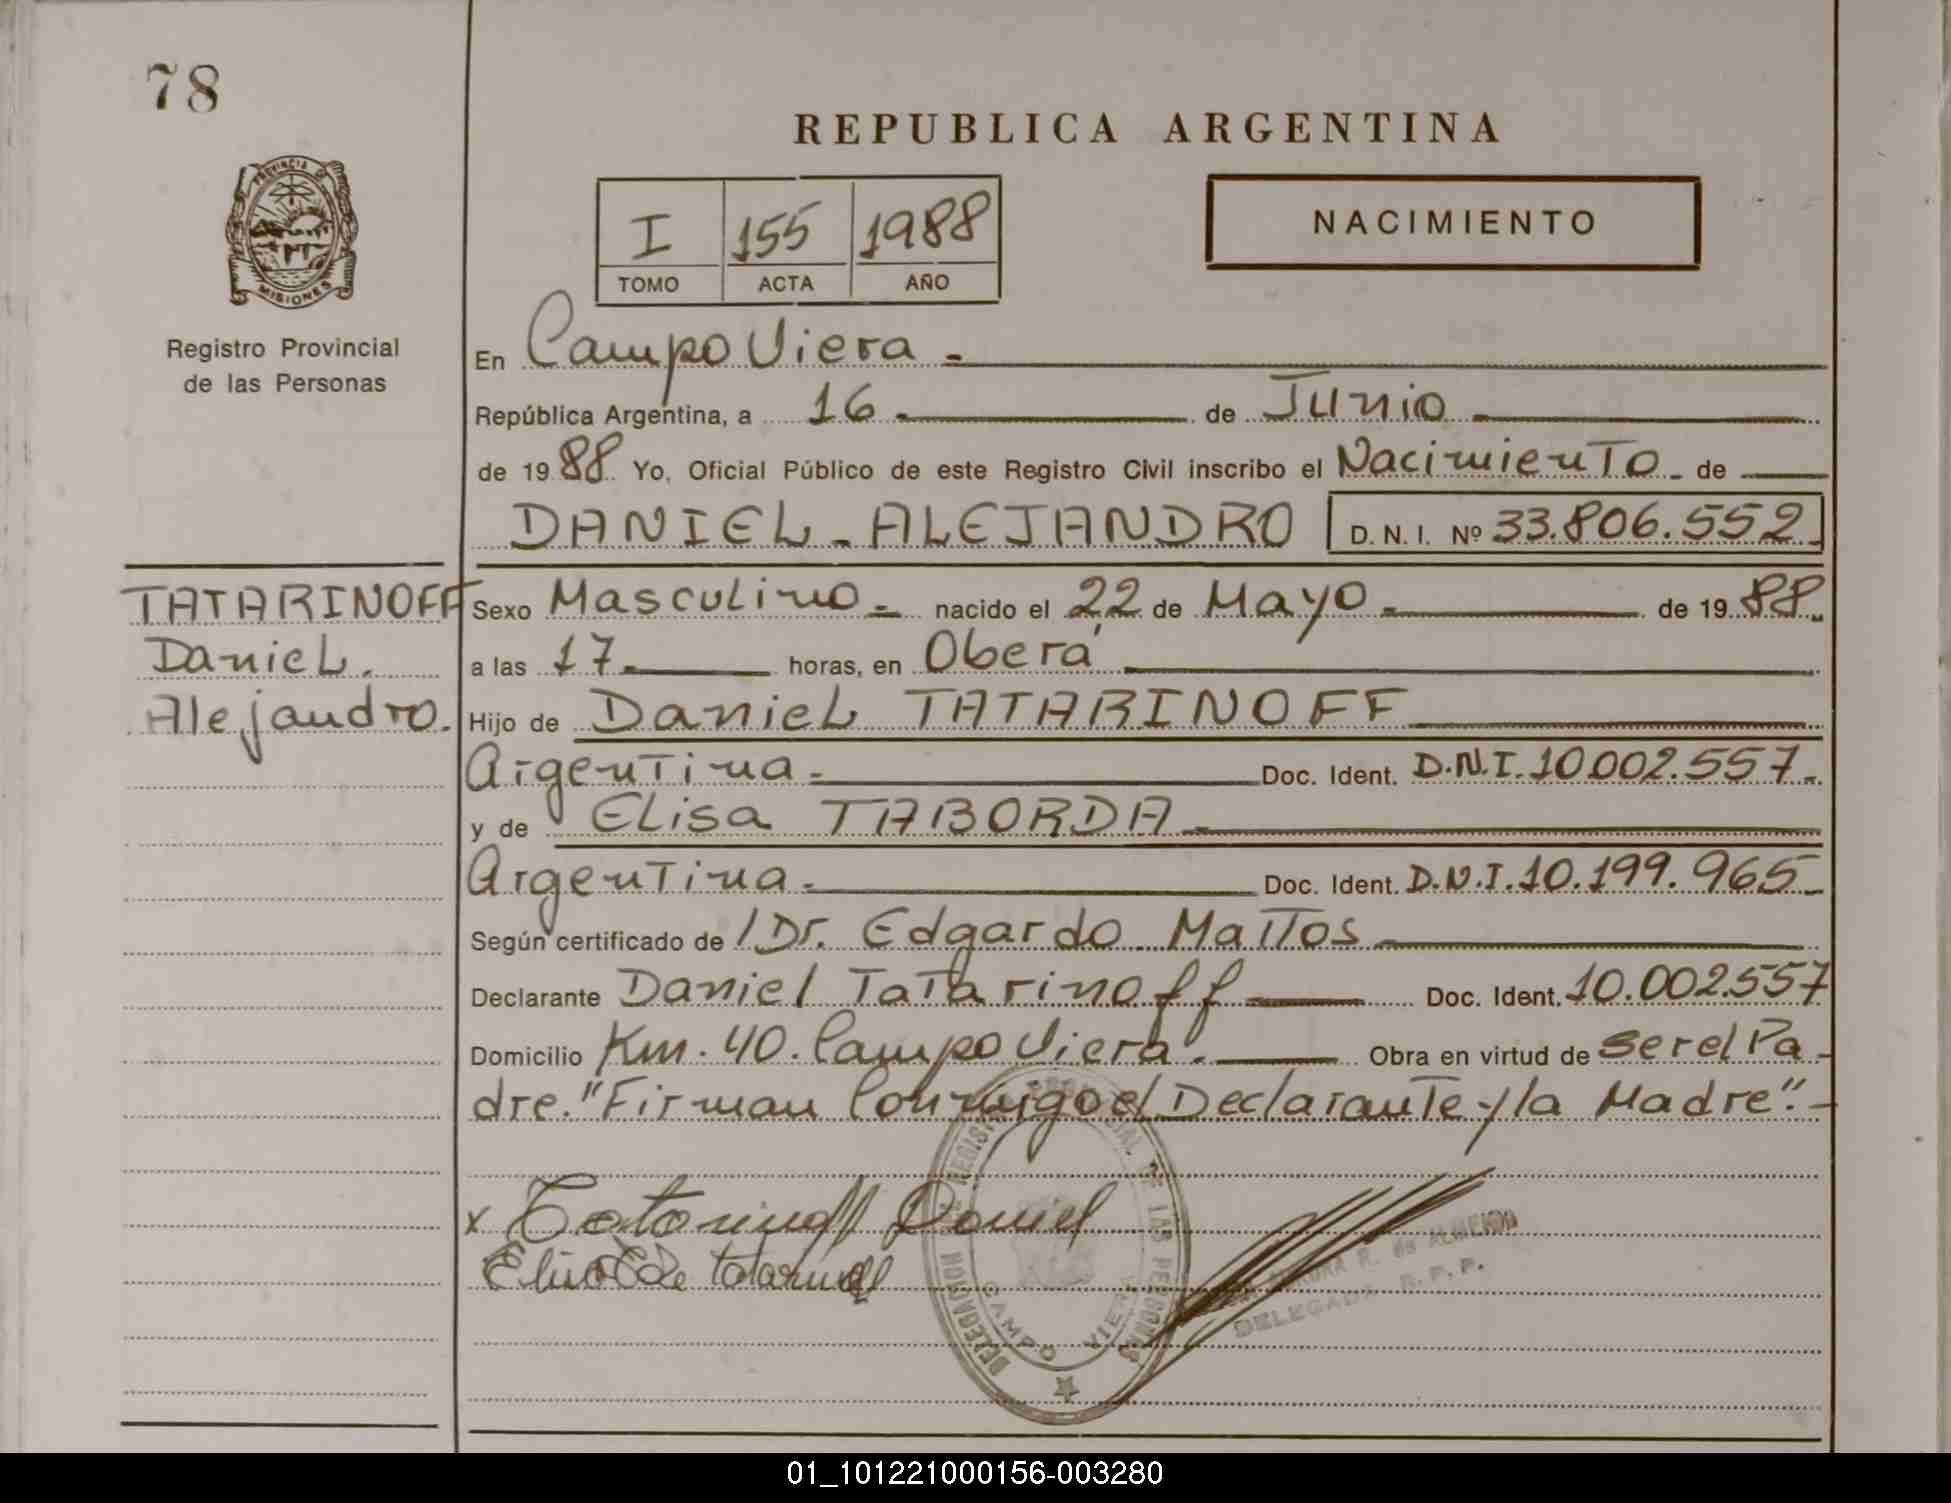 78
REPUBLICA ARGENTINA
PROVINCIA
MISIONES
I 155 1988
TOMO ACTA AÑO
NACIMIENTO
Registro Provincial
de las Personas
En Campo Viera -
República Argentina, a 16 - de Junio
de 19 88 Yo, Oficial Público de este Registro Civil inscribo el Nacimiento - de
DANIEL - ALEJANDRO D. N. I. Nº 33.806.552
TATARINOFF
Daniel.
Alejandro.
Sexo Masculino - nacido el 22 de Mayo - de 19 88
a las 17 - horas, en Oberá
Hijo de Daniel TATARINOFF
Argentina - Doc. Ident. D.N.I. 10.002.557 -
y de Elisa TABORDA -
Argentina - Doc. Ident. D.N.I. 10.199.965 -
Según certificado de / Dr. Edgardo Mattos -
Declarante Daniel Tatarinoff Doc. Ident. 10.002.557
Domicilio Km. 40. Campo Viera. Obra en virtud de ser el Pa-
dre. "Firman Conmigo el Declarante y la Madre". -
x Tatarinoff Daniel
de Tatarinoff
DELEGACION REGISTRO PROVINCIAL DE LAS PERSONAS
CAMPO VIERA
R. de ALMEIDA
DELEGADA R. P. P.
01_101221000156-003280